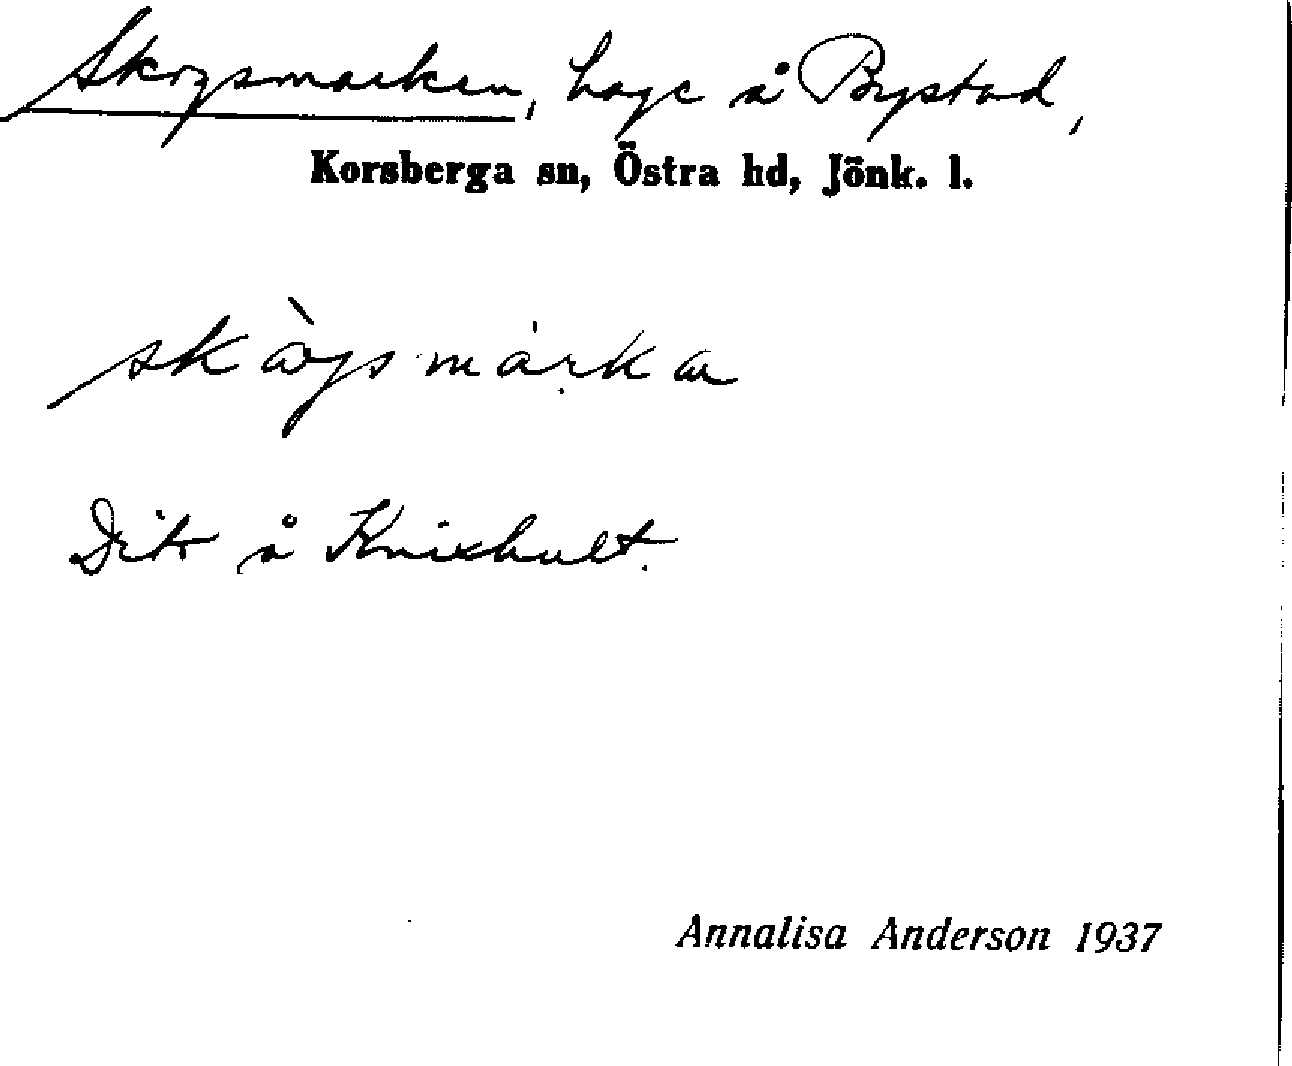 Skogsmarken, hage å Bystad,
Korsberga sn, Östra hd, Jönk. l.
Dito å Knixhult.
Annalisa Anderson 1937